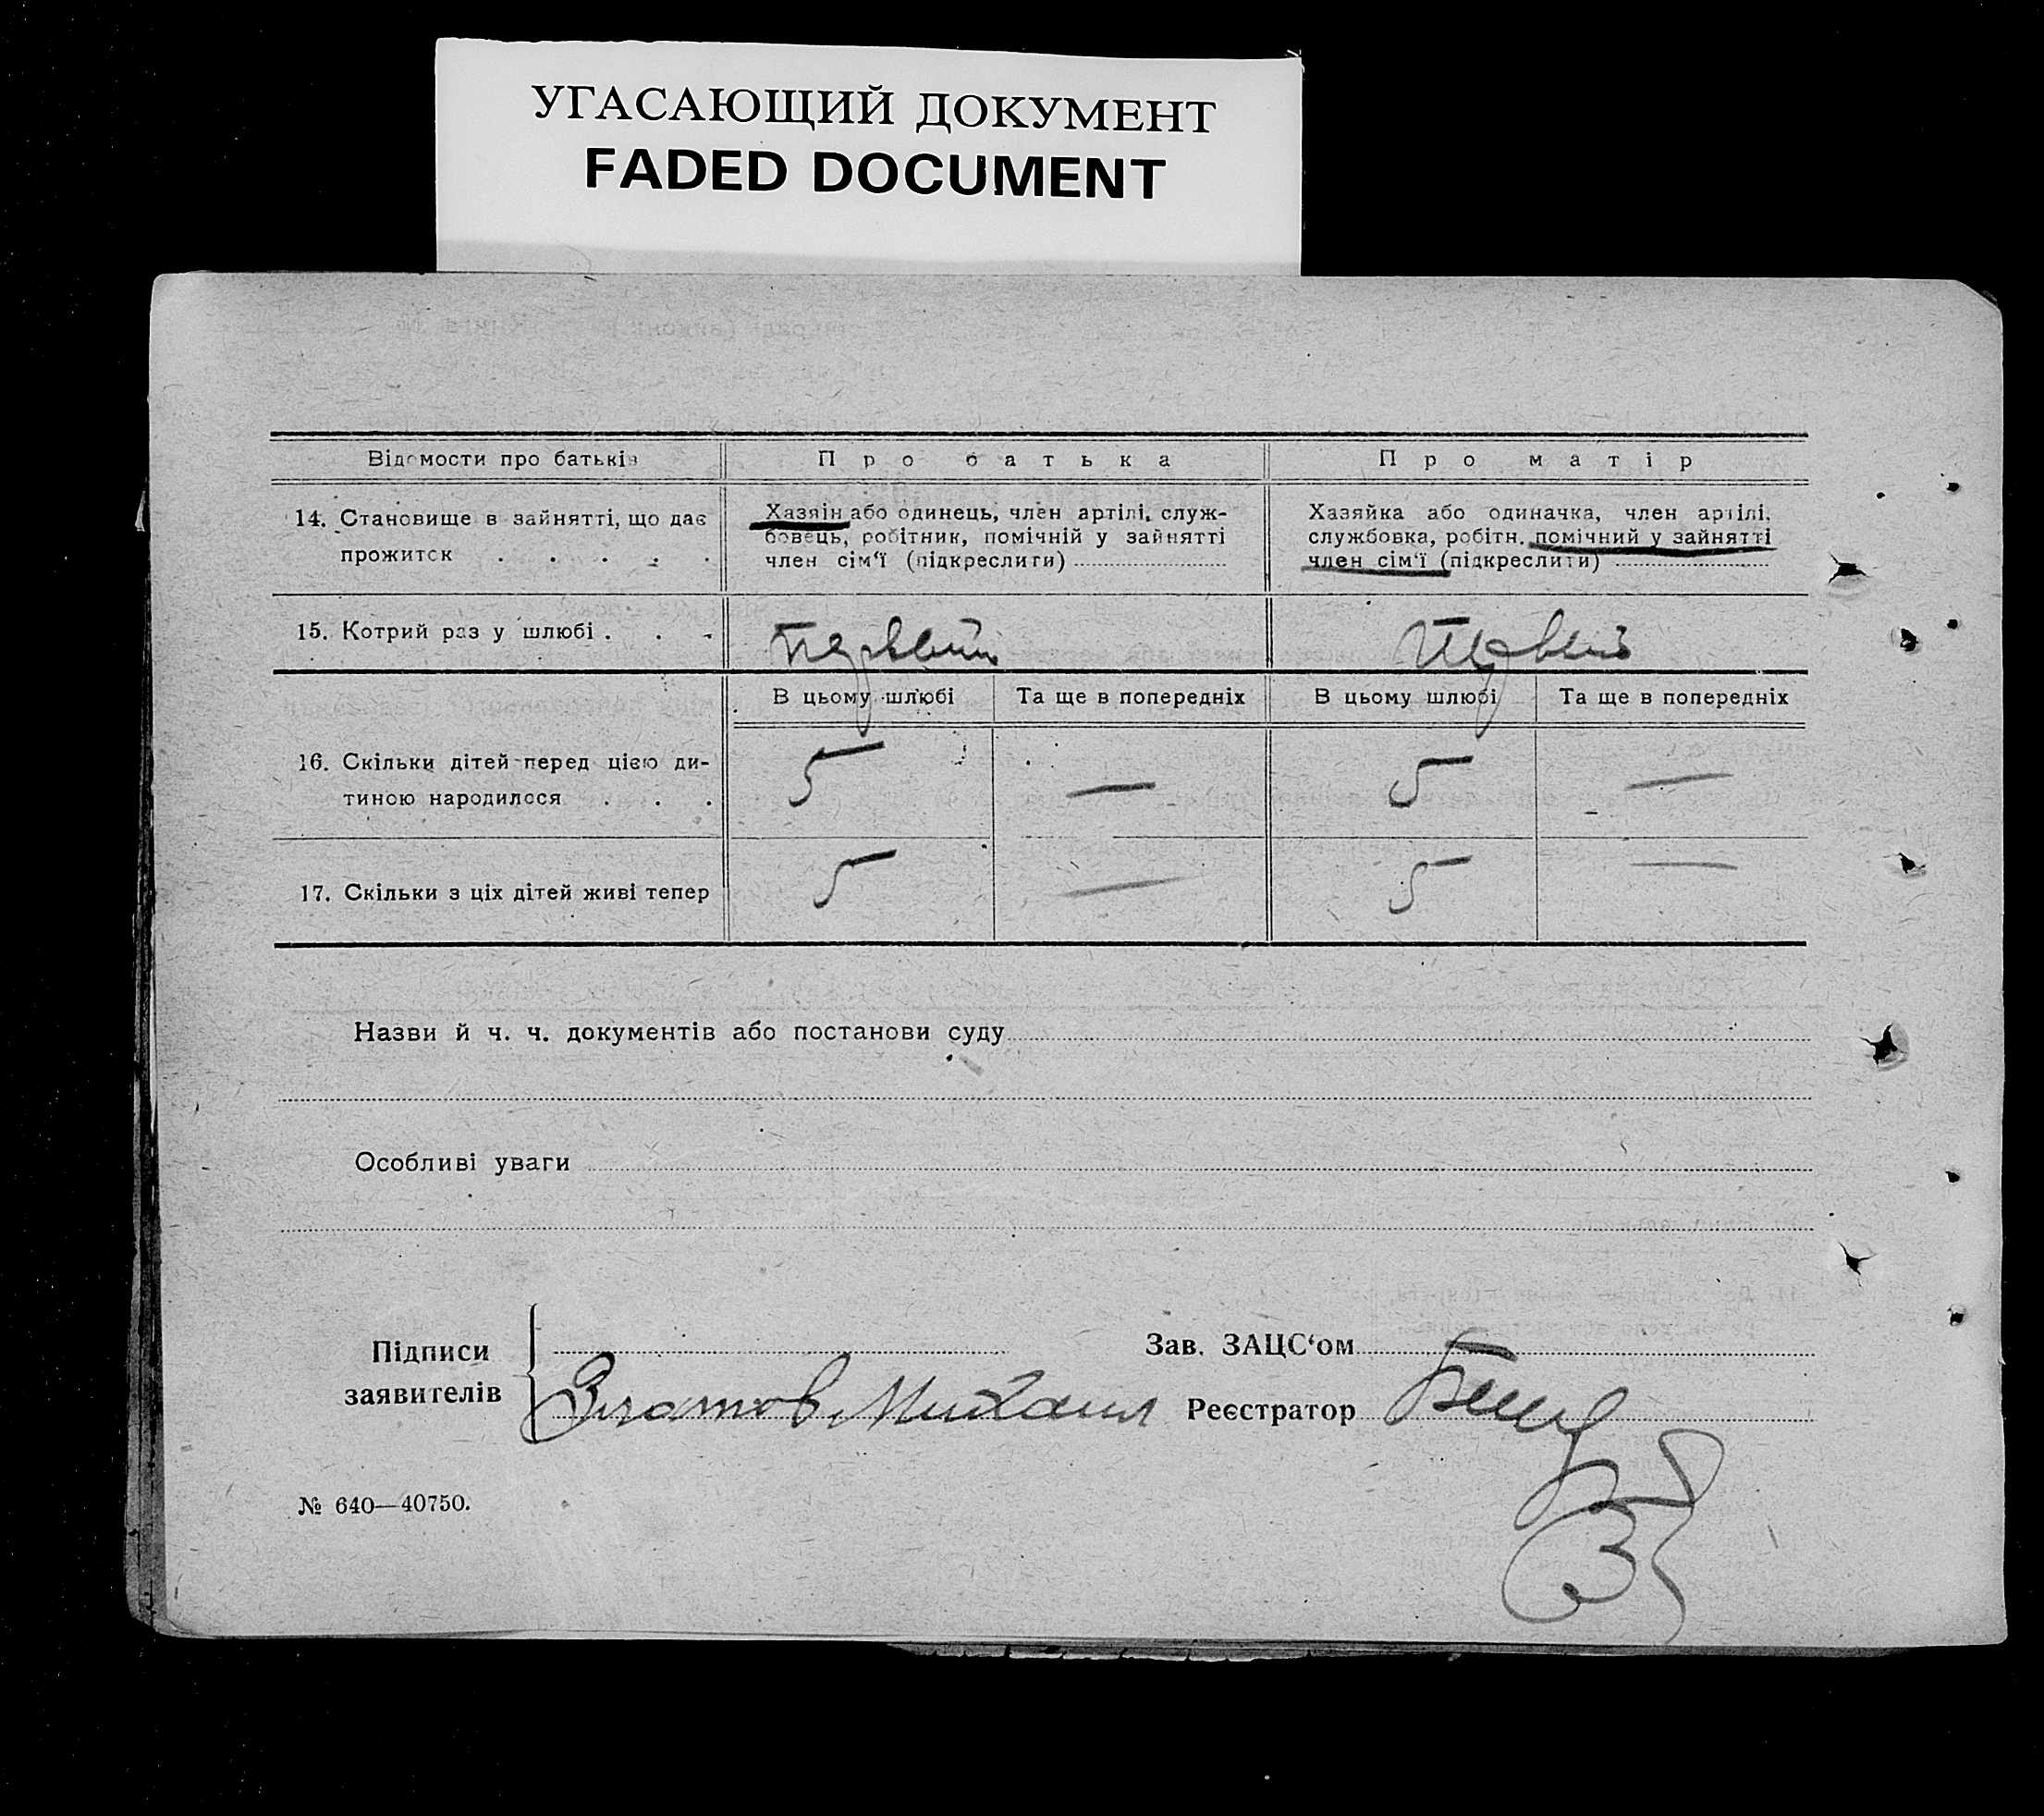 УГАСАЮЩИЙ ДОКУМЕНТ
FADED DOCUMENT
Відомости про батьків
Про батька
Про матір
14. Становище в зайнятті, що дає
прожиток . . . . .
Хазяін або одинець, член артілі, служ-
бовець, робітник, помічній у зайнятті
член сім‘ї (підкреслити)
Хазяйка або одиначка, член артілі,
службовка, робітн. помічний у зайнятті
член сім‘ї (підкреслити)
15. Котрий раз у шлюбі . . .
Первый
Первый
В цьому шлюбі
Та ще в попередніх
В цьому шлюбі
Та ще в попередніх
16. Скільки дітей перед цією ди-
тиною народилося . . .
5
—
5
—
17. Скільки з ціх дітей живі тепер
5
—
5
—
Назви й ч. ч. документів або постанови суду
Особливі уваги
Підписи
заявителів
Златов Михаил
Зав. ЗАЦС‘ом
Реєстратор
№ 640—40750.